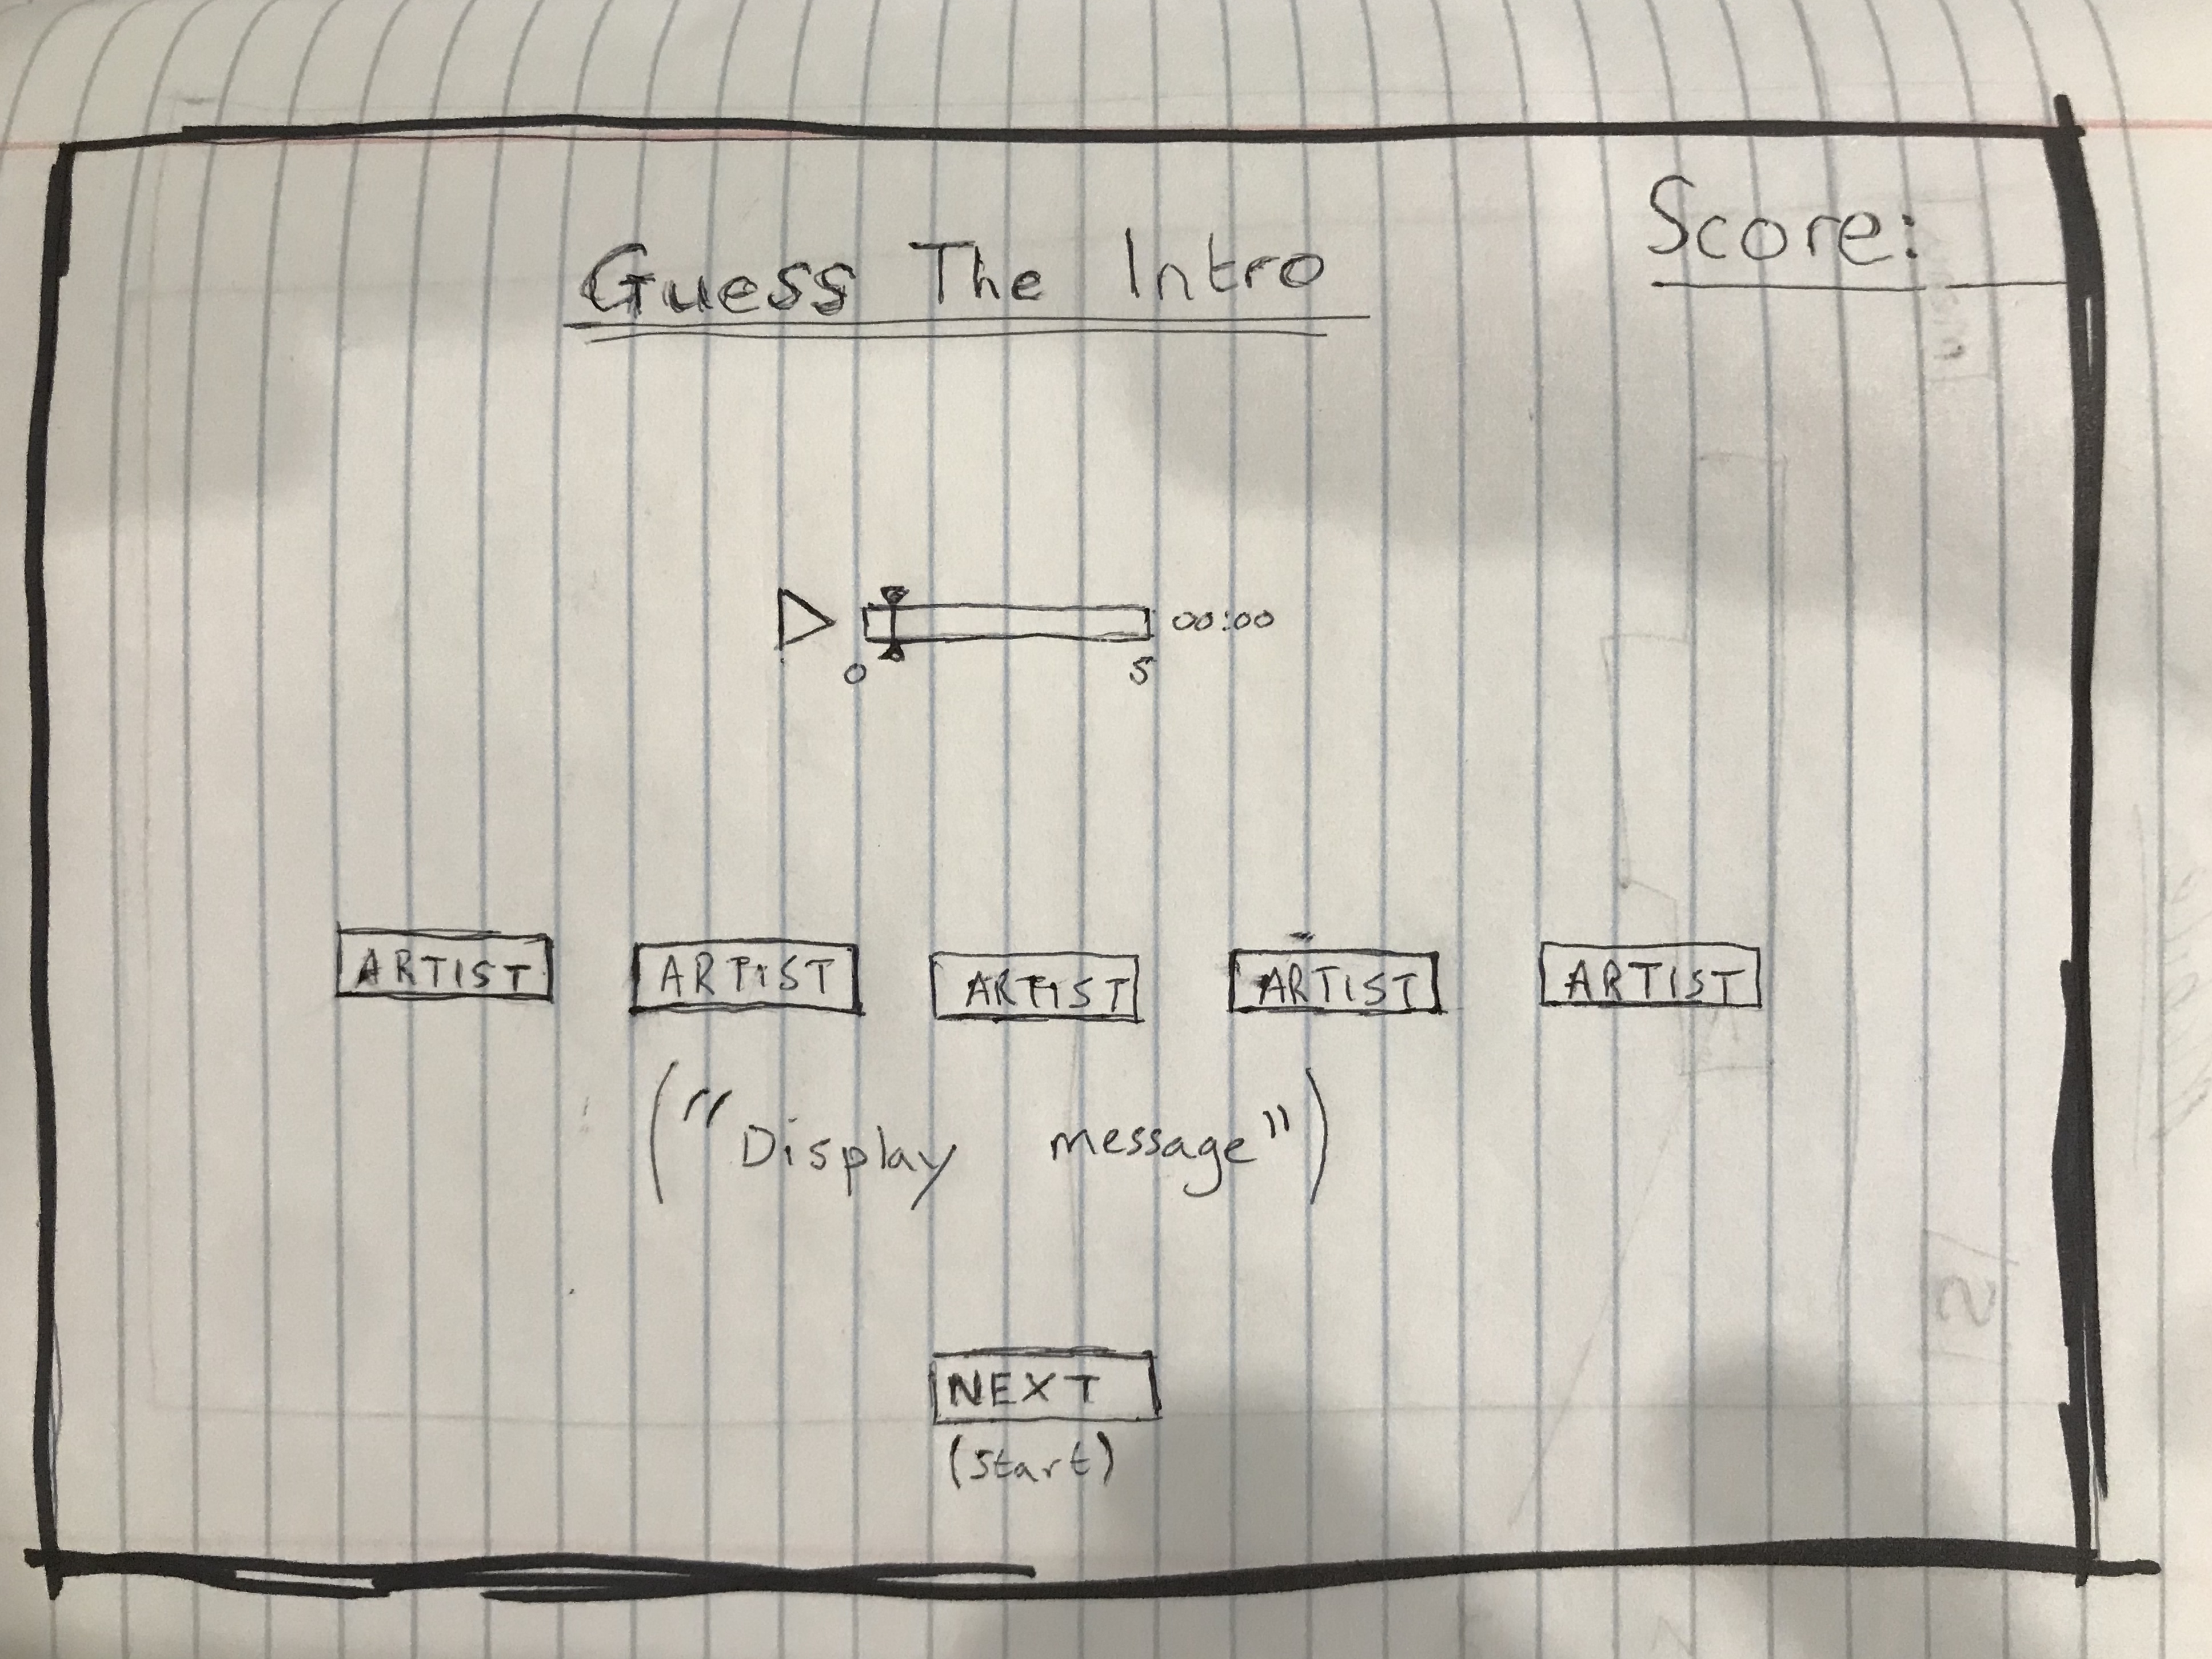 Score:
Guess The Intro
00:00
0 5
ARTIST ARTIST ARTIST ARTIST ARTIST
("Display message")
NEXT
(start)